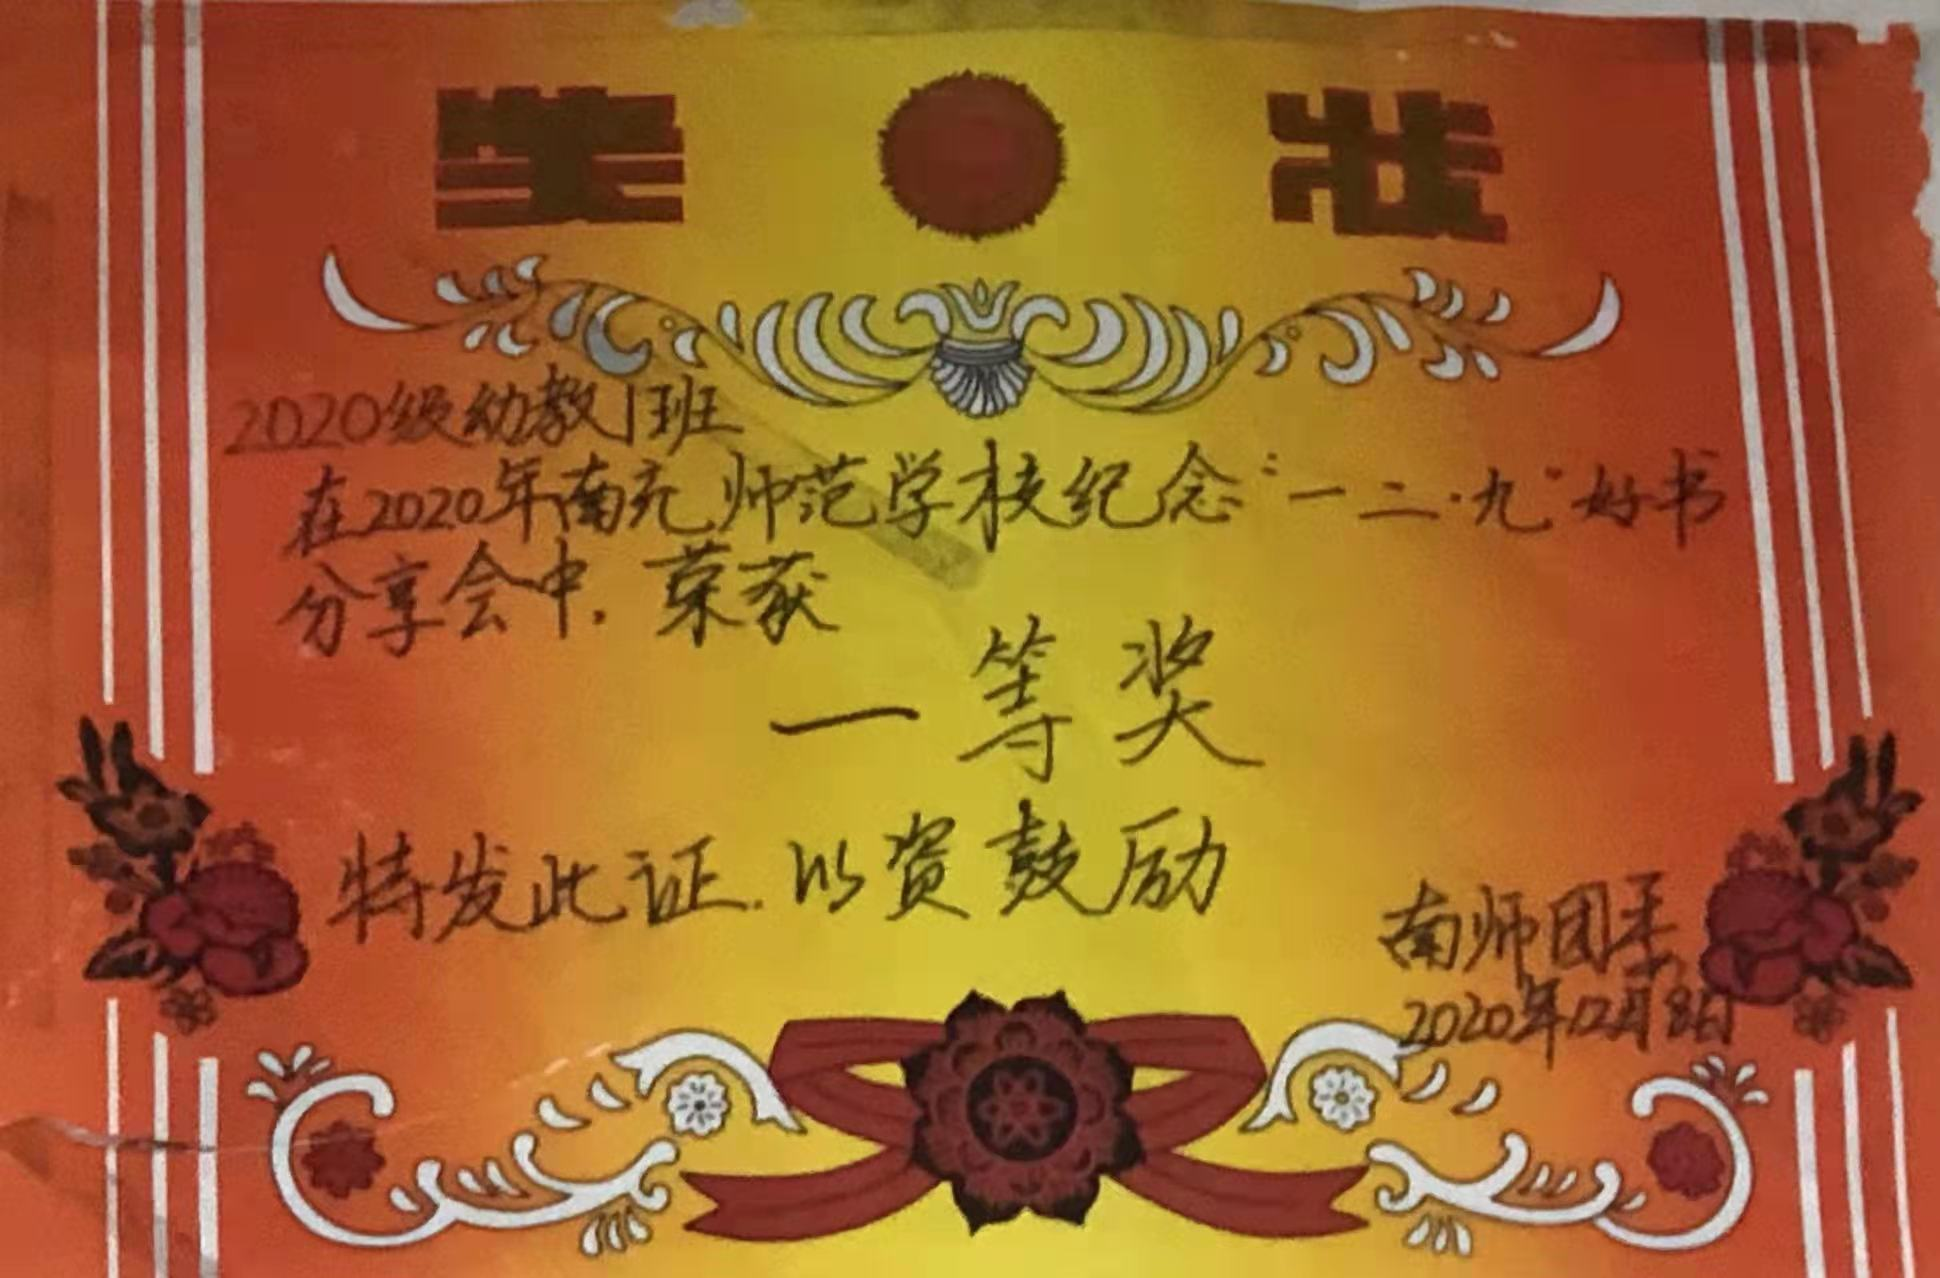 奖 状
2020级幼教1班
在2020年南充师范学校纪念“一二·九”好书
分享会中,荣获
一等奖
特发此证.以资鼓励
南师团委
2020年12月8日